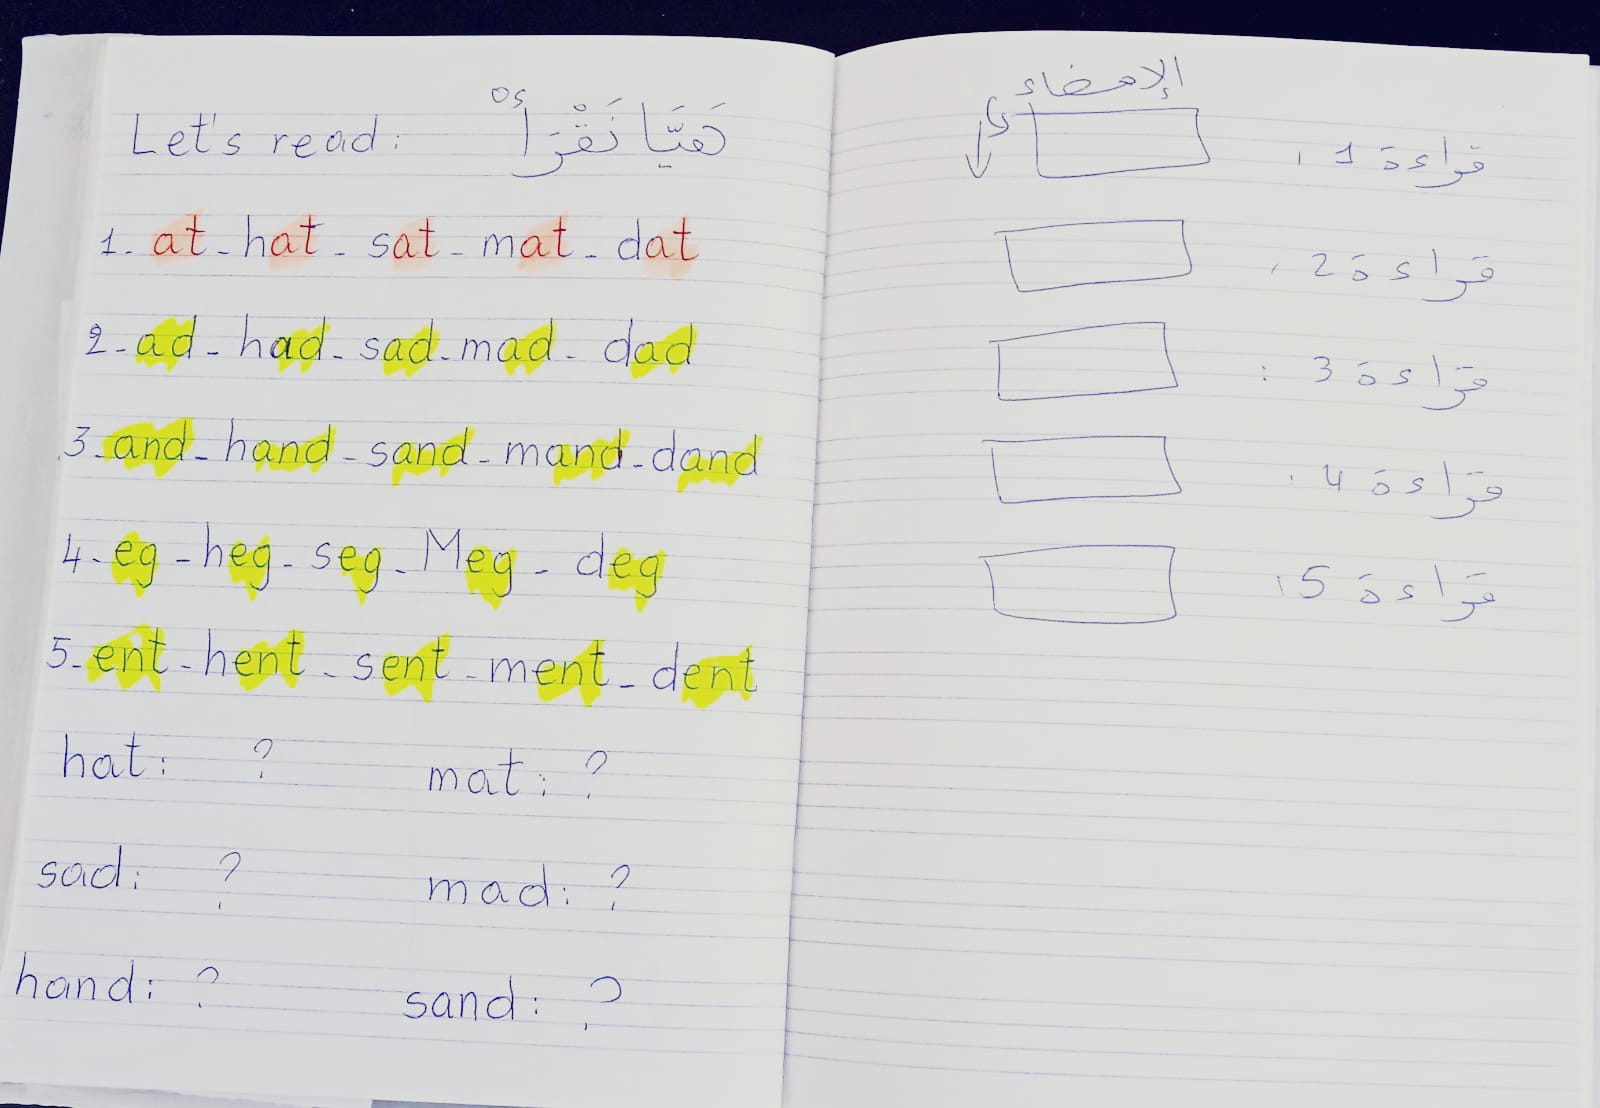 Let's read: هَيَّا نَقْرَأْ
1. at - hat - sat - mat - dat
2 - ad - had - sad - mad - dad
3 - and - hand - sand - mand - dand
4 - eg - heg - seg - Meg - deg
5 - ent - hent - sent - ment - dent
hat: ? mat: ?
sad: ? mad: ?
hand: ? sand: ?
الإمضاء
قراءة 1 :
قراءة 2 :
قراءة 3 :
قراءة 4 :
قراءة 5 :